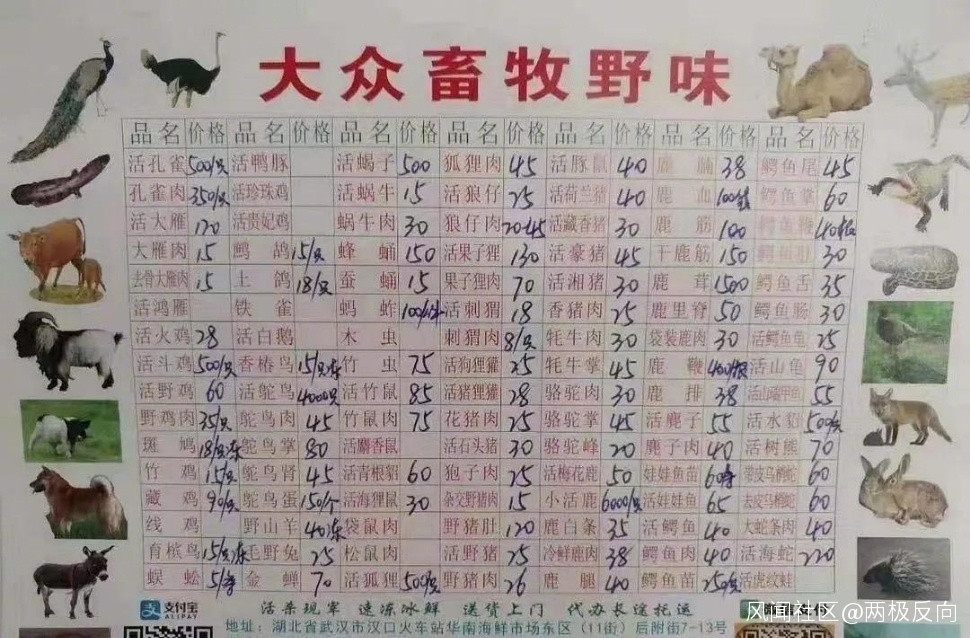 大众畜牧野味
品名 价格 品名 价格 品名 价格 品名 价格 品名 价格 品名 价格 品名 价格
活孔雀 500/只 活鸭豚 活蝎子 500 狐狸肉 45 活豚鼠 40 鹿 38 鳄鱼尾 45
孔雀肉 350/只 活珍珠鸡 活蜗牛 15 活狼仔 25 活荷兰猪 40 鹿血 鳄鱼掌 60
活大雁 120 活贵妃鸡 蜗牛肉 30 狼仔肉 20-45 活藏香猪 30 鹿筋 100 鳄鱼鞭
大雁肉 15 鹧鸪 15/只 蜂蛹 150 活果子狸 130 活豪猪 45 干鹿筋 150 鳄鱼肚 30
去骨大雁肉 15 土鸽 18/只 蚕蛹 15 果子狸肉 70 活湘猪 30 鹿茸 1500 鳄鱼舌 35
活鸿雁 铁雀 蚂蚱 活刺猬 18 香猪肉 25 鹿里脊 50 鳄鱼肠 30
活火鸡 28 活白鹅 木虫 刺猬肉 8/只 牦牛肉 30 袋装鹿肉 30 活鳄鱼龟 25
活斗鸡 500/只 香椿鸟 15/只 竹虫 75 活狗狸獾 25 牦牛掌 45 鹿鞭 活山龟 90
活野鸡 60 活鸵鸟 4000只 活竹鼠 85 活猪狸獾 28 骆驼肉 30 鹿排 38 55
野鸡肉 35/只 鸵鸟肉 45 竹鼠肉 75 花猪肉 25 骆驼掌 45 活麂子 55 活水貂 500/只
斑鸠 18/只 鸵鸟掌 80 活麝香鼠 活石头猪 30 骆驼峰 20 麂子肉 40 活树熊 70
竹鸡 15/只 鸵鸟肾 45 活青根貂 60 狍子肉 25 活梅花鹿 50 娃娃鱼苗 带皮乌梢蛇 60
藏鸡 90/只 鸵鸟蛋 150/个 活海狸鼠 30 杂交野猪肉 15 小活鹿 6000/只 活娃娃鱼 65 去皮乌梢蛇 60
线鸡 野山羊 袋鼠肉 野猪肚 120 鹿白条 35 活鳄鱼 40 大蛇条肉 40
育槟鸟 15/只 毛野兔 25 松鼠肉 活野猪 25 冷鲜鹿肉 38 鳄鱼肉 40 活海蛇 220
蜈蚣 金蝉 70 活狐狸 500/只 野猪肉 26 鹿腿 40 鳄鱼苗 250/只 活虎纹蛙
支付宝 ALIPAY 活杀现宰 速冻冰鲜 送货上门 代办长途托运
地址：湖北省武汉市汉口火车站华南海鲜市场东区（11街）后附街7-13号
风闻社区@两极反向